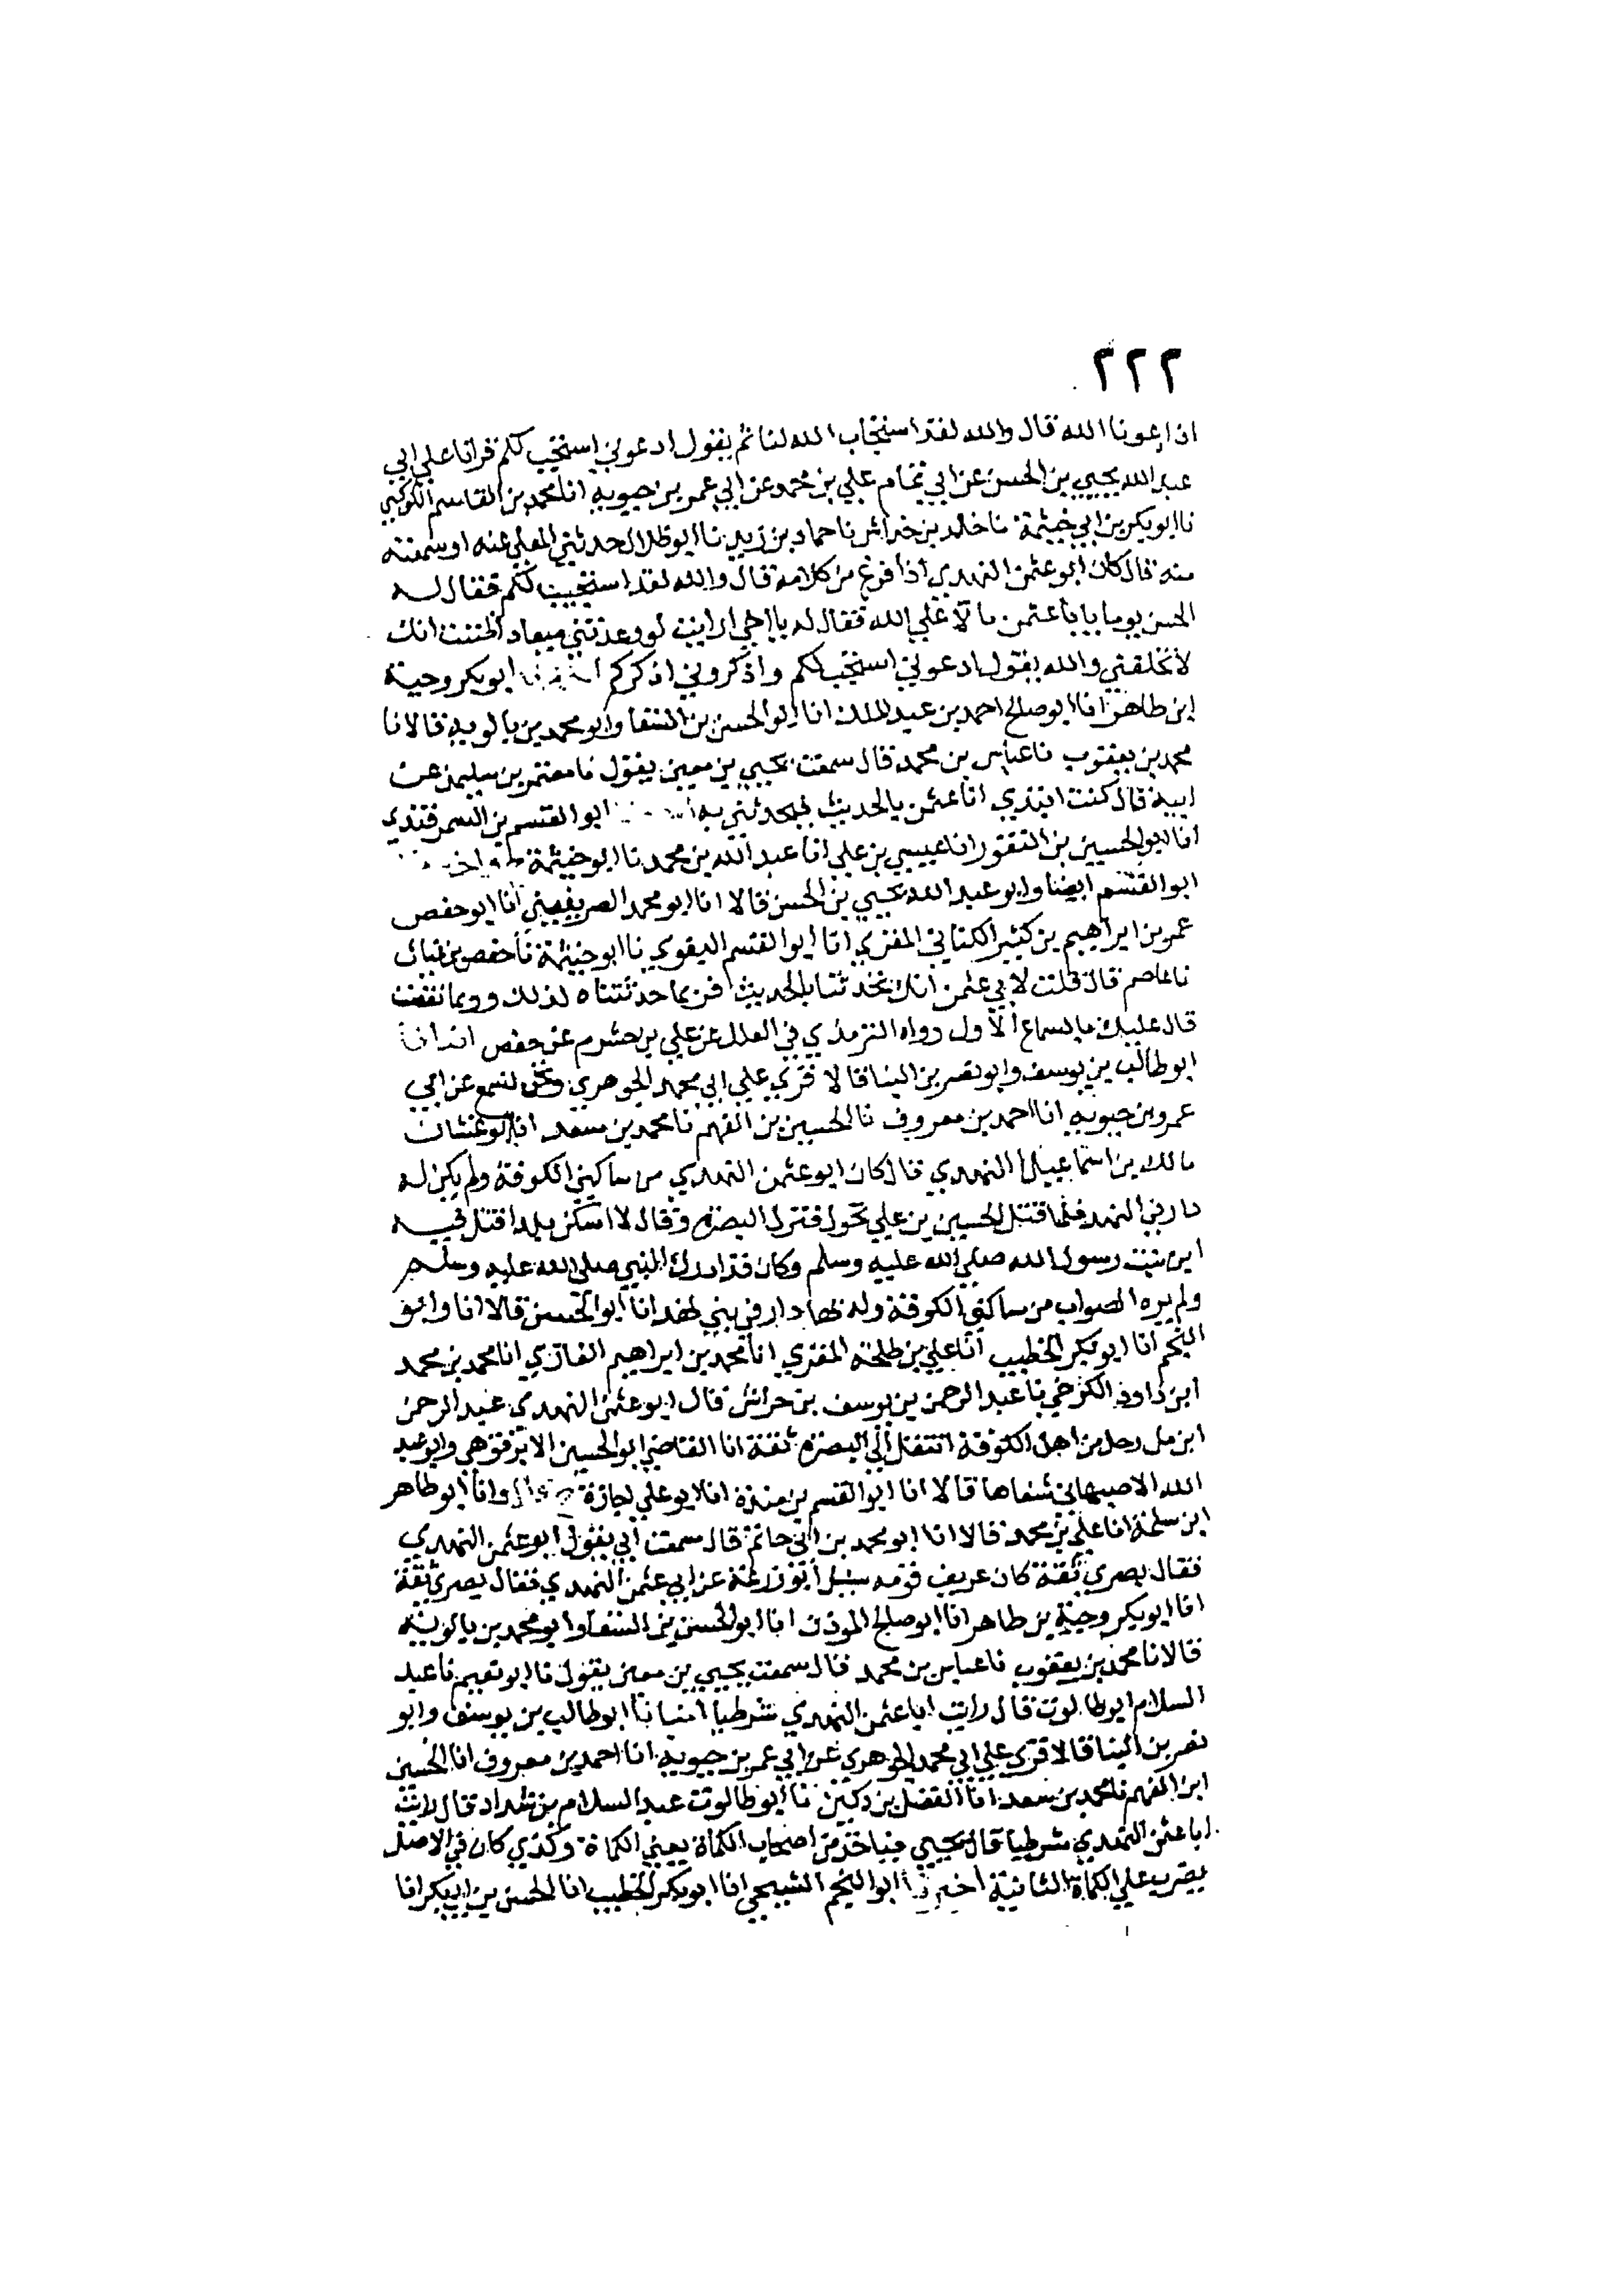 ٢٢٢
اذا دعونا الله قال والله لقد استجاب الله لنا ثم يقول ادعوني استجب لكم قرانا علي ابي
عبد الله يحيي بن الحسن عن ابي تمام علي بن محمد عن ابي عمر بن حيويه انا محمد بن القاسم الكوكبي
نا ابو بكر بن ابي خيثمة نا خالد بن خداش نا حماد بن زيد نا ابو طلال حدثني المعلي عنه او سمعته
منه قال كان ابو عثمن النهدي اذا فرغ من كلامه قال والله لقد استجيب لكم فقال له
الحسن يوما يا با عثمن ما لا علي الله فقال له يا اخي ارايت لو وعدتني ميعاد اظننت انك
لا تخلفني والله يقول ادعوني استجب لكم واذكروني اذكركم ابو بكر وجيه
ابن طاهر انا ابو صالح احمد بن عبد الملك انا ابو الحسن بن السقا وابو محمد بن بالويه قالا نا
محمد بن يعقوب نا عباس بن محمد قال سمعت يحيي بن معين يقول نا معتمر بن سليمن عن
ابيه قال كنت ابتدي ابا عثمن بالحديث فيحدثني به ابو القسم بن السمرقندي
انا ابو الحسين بن النقور انا عيسي بن علي انا عبد الله بن محمد نا ابو خيثمة
ابو القسم ايضا وابو عبد الله يحيي بن الحسن قالا انا ابو محمد الصريفيني انا ابو حفص
عمر بن ابراهيم بن كثير الكتاني المقري انا ابو القسم البغوي نا ابو خيثمة نا حفص بن غياث
نا عاصم قال قلت لابي عثمن انك تحدثنا بالحديث فربما حدثتناه كذلك وربما نقصت
قال عليك بالسماع الاول رواه الترمذي في العلل عن علي بن خشرم عن حفص
ابو طالب بن يوسف وابو نصر بن البنا قالا قري علي ابي محمد الجوهري ونحن نسمع عن ابي
عمر بن حيويه انا احمد بن معروف نا الحسين بن الفهم نا محمد بن سعد انا ابو غسان
مالك بن اسماعيل النهدي قال كان ابو عثمن النهدي من ساكني الكوفة ولم يكن له
دار بني النهد فلما قتل الحسين بن علي تحول فنزل البصرة وقال لا اسكن بلدا قتل فيه
ابن بنت رسول الله صلي الله عليه وسلم وكان قد ادرك النبي صلي الله عليه وسلم
ولم يره الصواب من ساكني الكوفة وله بها دار في بني نهد انا ابو الحسن قالا انا وابو
النجم انا ابو بكر الخطيب انا علي بن طلحة المقري انا محمد بن ابراهيم الغازي انا محمد بن محمد
ابن داود الكرخي نا عبد الرحمن بن يوسف بن خراش قال ابو عثمن النهدي عبد الرحمن
ابن مل رجل من اهل الكوفة انتقل الي البصرة ثقة انا القاضي ابو الحسين الابرقوهي وابو عبد
الله الاصبهاني شفاها قالا انا ابو القسم بن منده انا ابو علي اجازة وانا ابو طاهر
ابن سلمة انا علي بن محمد قالا انا ابو محمد بن ابي حاتم قال سمعت ابي يقول ابو عثمن النهدي
فقال بصري ثقة كان عريف قومه سيل ابو زرعة عن ابي عثمن النهدي فقال بصري ثقة
انا ابو بكر وجيه بن طاهر انا ابو صالح الموذن انا ابو الحسن بن السقا وابو محمد بن بالويه
قالا نا محمد بن يعقوب نا عباس بن محمد قال سمعت يحيي بن معين يقول نا ابو نعيم نا عبد
السلام ابو طالوت قال رايت ابا عثمن النهدي شرطيا انبانا ابو طالب بن يوسف وابو
نصر بن البنا قالا قري علي ابي محمد الجوهري عن ابي عمر بن حيويه انا احمد بن معروف انا الحسين
ابن الفهم نا محمد بن سعد انا الفضل بن دكين نا ابو طالوت عبد السلام بن شداد قال رايت
ابا عثمن النهدي شرطيا قال يحيي فياخذ من اصحاب الكماة يعني الكماة وكذي كان في الاصل
يضرب علي الكماة الثانية اخبرنا ابو النجم الشيحي انا ابو بكر الخطيب انا الحسن بن ابي بكر انا